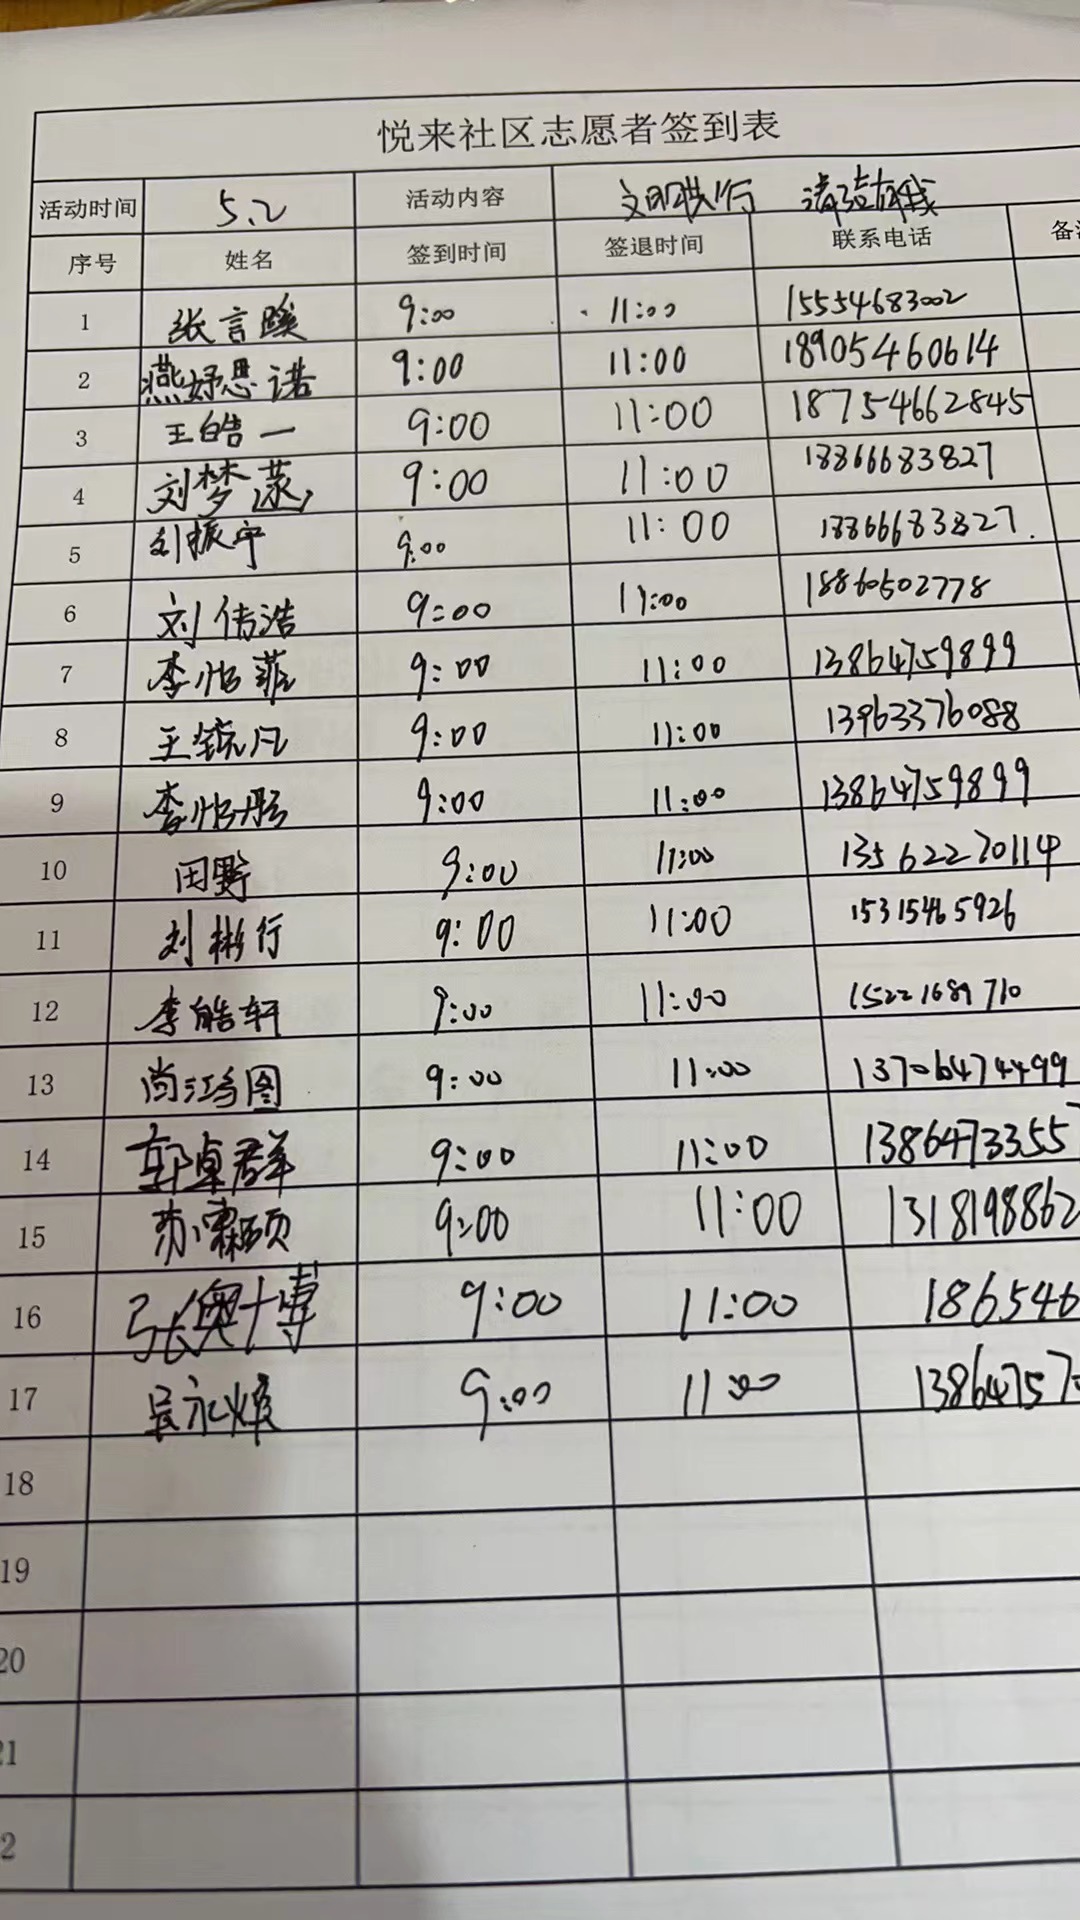 悦来社区志愿者签到表
活动时间 5.2 活动内容 文明 行 清 有我
序号 姓名 签到时间 签退时间 联系电话 备
1 张言 9:00 11:00 15554683002
2 燕妤思诺 9:00 11:00 18905460614
3 王皓一 9:00 11:00 18754662845
4 刘梦 9:00 11:00 18866683827
5 刘振宇 9:00 11:00 18866683827
6 刘倩浩 9:00 11:00 18860502778
7 李怡菲 9:00 11:00 13864759899
8 王锐凡 9:00 11:00 13963376088
9 李怡彤 9:00 11:00 13864759899
10 田野 9:00 11:00 13562220114
11 刘彬行 9:00 11:00 15315465926
12 李皓轩 9:00 11:00 15221689710
13 尚鸿图 9:00 11:00 13706474499
14 郭卓群 9:00 11:00 1386473355
15 苏霖硕 9:00 11:00 1318198862
16 张奥博 9:00 11:00 186546
17 吴永 9:00 11:00 13864757
18
19
20
21
2